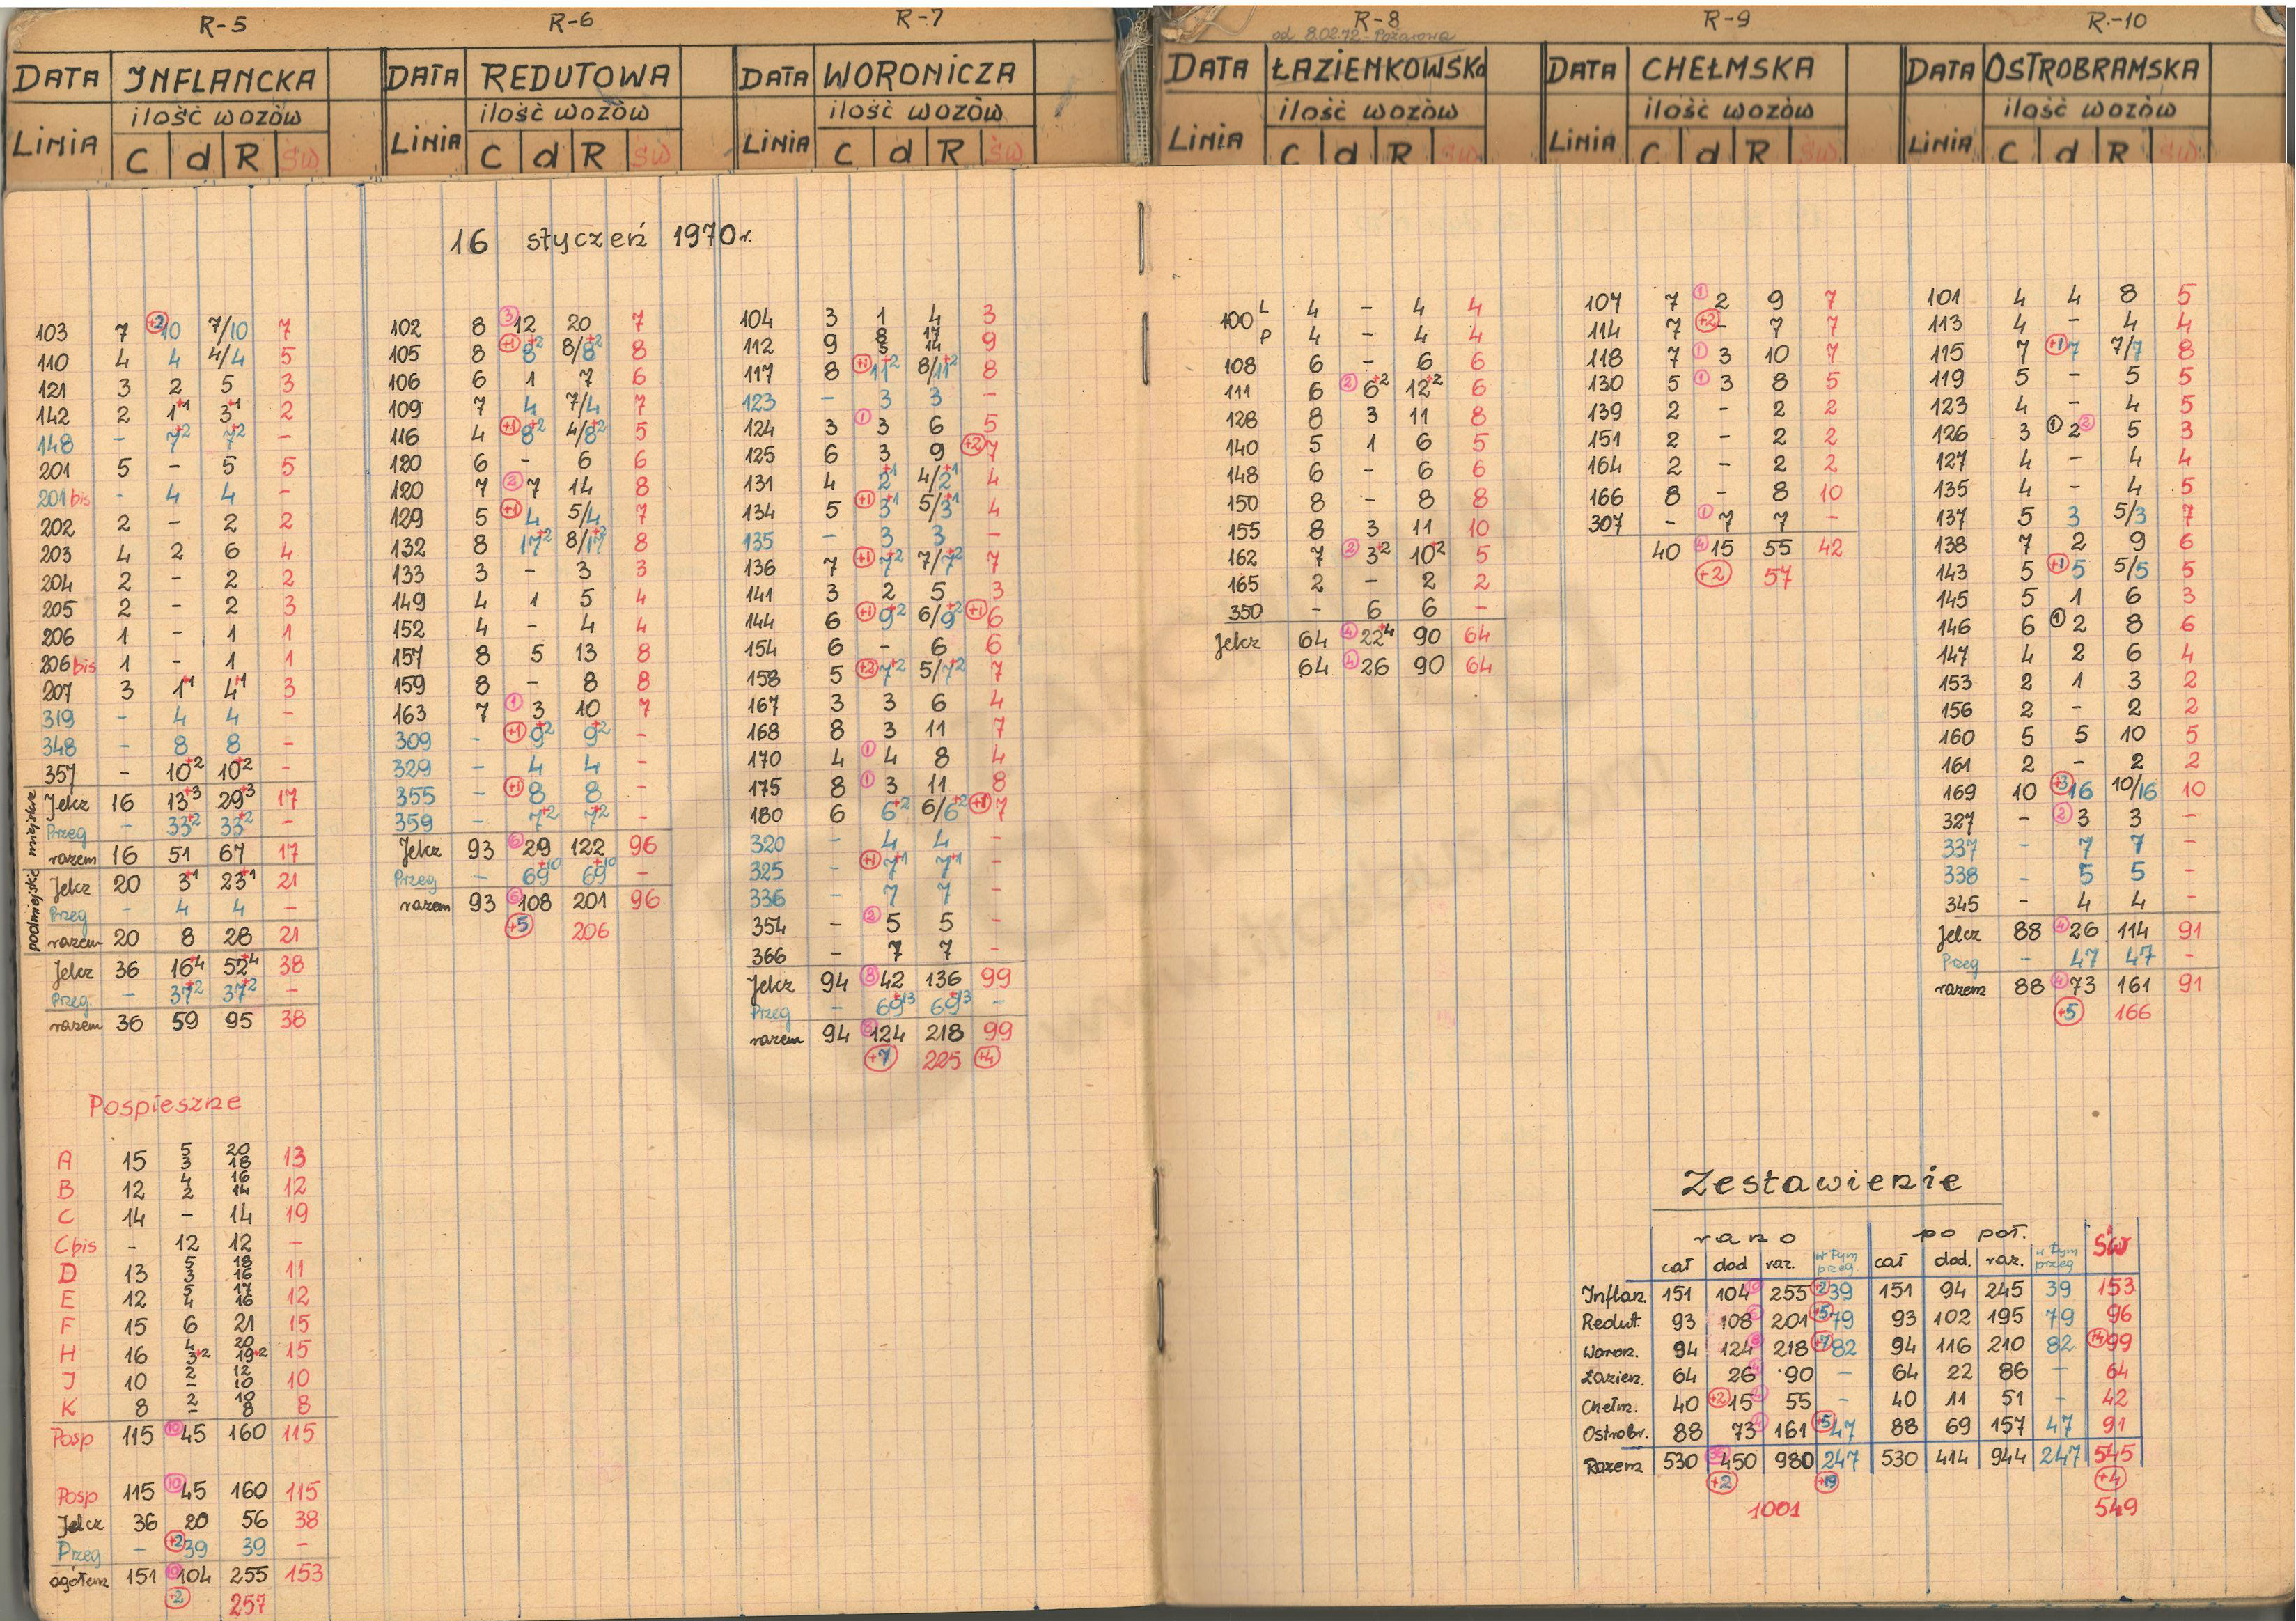 R-5
DATA INFLANCKA
ilość wozów
LINIA C d R ŚW
R-6
DATA REDUTOWA
ilość wozów
LINIA C d R ŚW
R-7
DATA WORONICZA
ilość wozów
LINIA C d R ŚW
R-8
od 8.02.72 - Pożarowa
DATA ŁAZIENKOWSKA
ilość wozów
LINIA C d R ŚW
R-9
DATA CHEŁMSKA
ilość wozów
LINIA C d R ŚW
R-10
DATA OSTROBRAMSKA
ilość wozów
LINIA C d R ŚW
16 styczeń 1970 r.
103 7 +2 10 7/10 7
110 4 4 4/4 5
121 3 2 5 3
142 2 1+1 3+1 2
148 - 7+2 7+2 -
201 5 - 5 5
201 bis - 4 4 -
202 2 - 2 2
203 4 2 6 4
204 2 - 2 2
205 2 - 2 3
206 1 - 1 1
206 bis 1 - 1 1
207 3 1+1 4+1 3
319 - 4 4 -
348 - 8 8 -
357 - 10+2 10+2 -
miejskie
Jelcz 16 13+3 29+3 17
Przeg - 33+2 33+2 -
razem 16 51 67 17
podmiejskie
Jelcz 20 3+1 23+1 21
Przeg - 4 4 -
razem 20 8 28 21
Jelcz 36 16+4 52+4 38
Przeg. - 37+2 37+2 -
razem 36 59 95 38
Pospieszne
A 15 5 3 20 18 13
B 12 4 2 16 14 12
C 14 - 14 19
C bis - 12 12 -
D 13 5 3 18 16 11
E 12 5 4 17 16 12
F 15 6 21 15
H 16 4 3+2 20 19+2 15
J 10 2 - 12 10 10
K 8 2 - 10 8 8
Posp 115 10 45 160 115
Posp 115 10 45 160 115
Jelcz 36 20 56 38
Przeg - +2 39 39 -
ogółem 151 10 104 255 153
+2 257
102 8 3 12 20 7
105 8 +1 8+2 8/8+2 8
106 6 1 7 6
109 7 4 7/4 7
116 4 +1 8+2 4/8+2 5
120 6 - 6 6
120 7 2 7 14 8
129 5 +1 4 5/4 7
132 8 17+2 8/17+2 8
133 3 - 3 3
149 4 1 5 4
152 4 - 4 4
157 8 5 13 8
159 8 - 8 8
163 7 1 3 10 7
309 - +1 9+2 9+2 -
329 - 4 4 -
355 - +1 8 8 -
359 - 7+2 7+2 -
Jelcz 93 6 29 122 96
Przeg - 69+10 69+10 -
razem 93 6 108 201 96
+5 206
104 3 1 4 3
112 9 8 5 17 14 9
117 8 +1 11+2 8/11+2 8
123 - 3 3 -
124 3 1 3 6 5
125 6 3 9 +2 7
131 4 2+1 4/2+1 4
134 5 +1 3+1 5/3+1 4
135 - 3 3 -
136 7 +1 7+2 7/7+2 7
141 3 2 5 3
144 6 +1 9+2 6/9+2 +1 6
154 6 - 6 6
158 5 +2 7+2 5/7+2 7
167 3 3 6 4
168 8 3 11 7
170 4 1 4 8 4
175 8 1 3 11 8
180 6 6+2 6/6+2 +1 7
320 - 4 4 -
325 - +1 7+1 7+1 -
336 - 7 7 -
354 - 2 5 5 -
366 - 7 7 -
Jelcz 94 8 42 136 99
Przeg - 69+13 69+13 -
razem 94 8 124 218 99
+7 225 +4
100 L 4 - 4 4
P 4 - 4 4
108 6 - 6 6
111 6 2 6+2 12+2 6
128 8 3 11 8
140 5 1 6 5
148 6 - 6 6
150 8 - 8 8
155 8 3 11 10
162 7 2 3+2 10+2 5
165 2 - 2 2
350 - 6 6 -
Jelcz 64 4 22+4 90 64
64 4 26 90 64
107 7 1 2 9 7
114 7 +2 - 7 7
118 7 1 3 10 7
130 5 1 3 8 5
139 2 - 2 2
151 2 - 2 2
164 2 - 2 2
166 8 - 8 10
307 - 1 7 7 -
40 4 15 55 42
+2 57
101 4 4 8 5
113 4 - 4 4
115 7 +1 7 7/7 8
119 5 - 5 5
123 4 - 4 5
126 3 1 2 2 5 3
127 4 - 4 4
135 4 - 4 5
137 5 3 5/3 7
138 7 2 9 6
143 5 +1 5 5/5 5
145 5 1 6 3
146 6 1 2 8 6
147 4 2 6 4
153 2 1 3 2
156 2 - 2 2
160 5 5 10 5
161 2 - 2 2
169 10 +3 16 10/16 10
327 - 2 3 3 -
337 - 7 7 -
338 - 5 5 -
345 - 4 4 -
Jelcz 88 4 26 114 91
Przeg - 47 47 -
razem 88 4 73 161 91
+5 166
Zestawienie
rano po poł. ŚW
cał dod raz. w tym przeg. cał dod. raz. w tym przeg
Inflan. 151 104 10 255 +2 39 151 94 245 39 153
Redut. 93 108 6 201 +5 79 93 102 195 79 96
Woron. 94 124 8 218 +7 82 94 116 210 82 +4 99
Łazien. 64 26 4 90 - 64 22 86 - 64
Chełm. 40 +2 15 4 55 - 40 11 51 - 42
Ostrobr. 88 73 4 161 +5 47 88 69 157 47 91
Razem 530 36 450 980 247 530 414 944 247 545
+2 +19 +4
1001 549